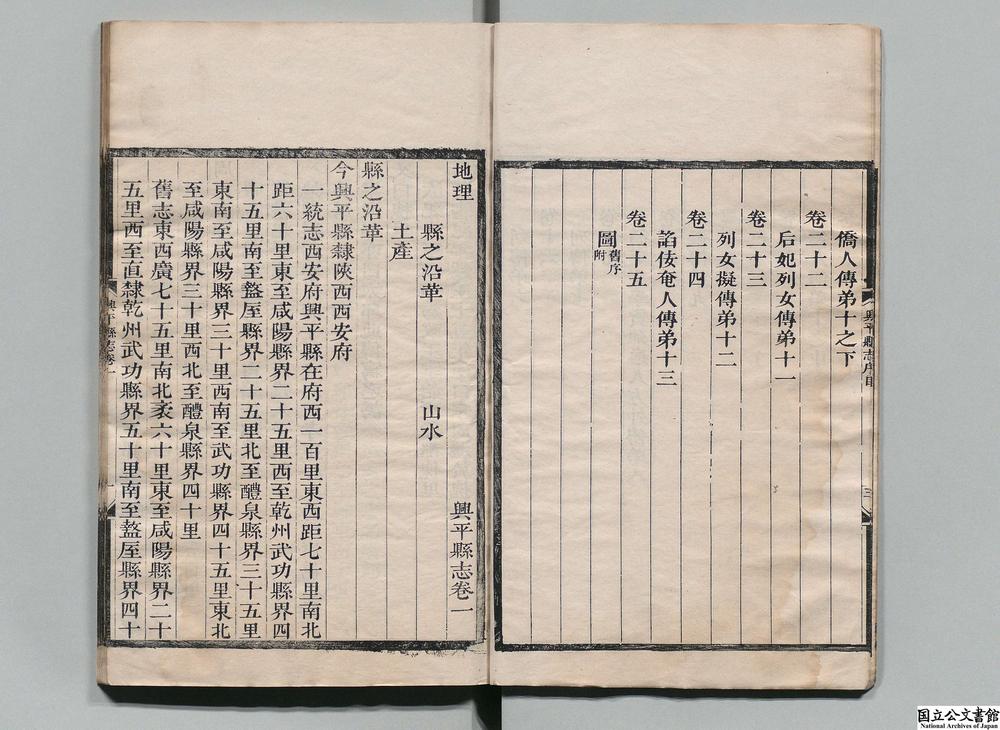 僑人傳弟十之下
卷二十二
后妃列女傳弟十一
卷二十三
列女擬傳弟十二
卷二十四
諂佞奄人傳弟十三
卷二十五
圖舊序附
興平縣志序目
三
地理 興平縣志卷一
縣之沿革 山水
土產
縣之沿革
今興平縣隸陝西西安府
一統志西安府興平縣在府西一百里東西距七十里南北
距六十里東至咸陽縣界二十五里西至乾州武功縣界四
十五里南至盩厔縣界二十五里北至醴泉縣界三十五里
東南至咸陽縣界三十里西南至武功縣界四十五里東北
至咸陽縣界三十里西北至醴泉縣界四十里
舊志東西廣七十五里南北袤六十里東至咸陽縣界二十
五里西至直隸乾州武功縣界五十里南至盩厔縣界四十
興平縣志卷一
一
国立公文書館
National Archives of Japan